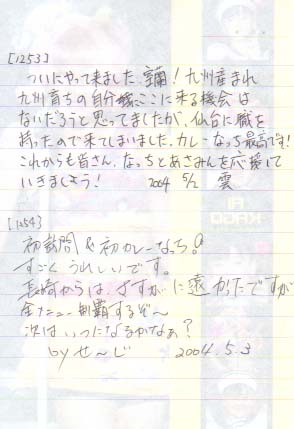 [1253]
ついにやって来ました、室蘭!九州産まれ
九州育ちの自分は、ここに来る機会は
ないだろうと思ってましたが、仙台に職を
持ったので来てしまいました。カレーなっち最高です!
これからも皆さん、なっちとあさみんを応援して
いきましょう! 2004 5/2 雲
[1254]
初訪問&初カレーなっち。
すごくうれしいです。
長崎からはさすがに遠かったですが
全メニュー制覇するぞ〜
次はいつになるかなぁ?
by せ〜じ 2004.5.3